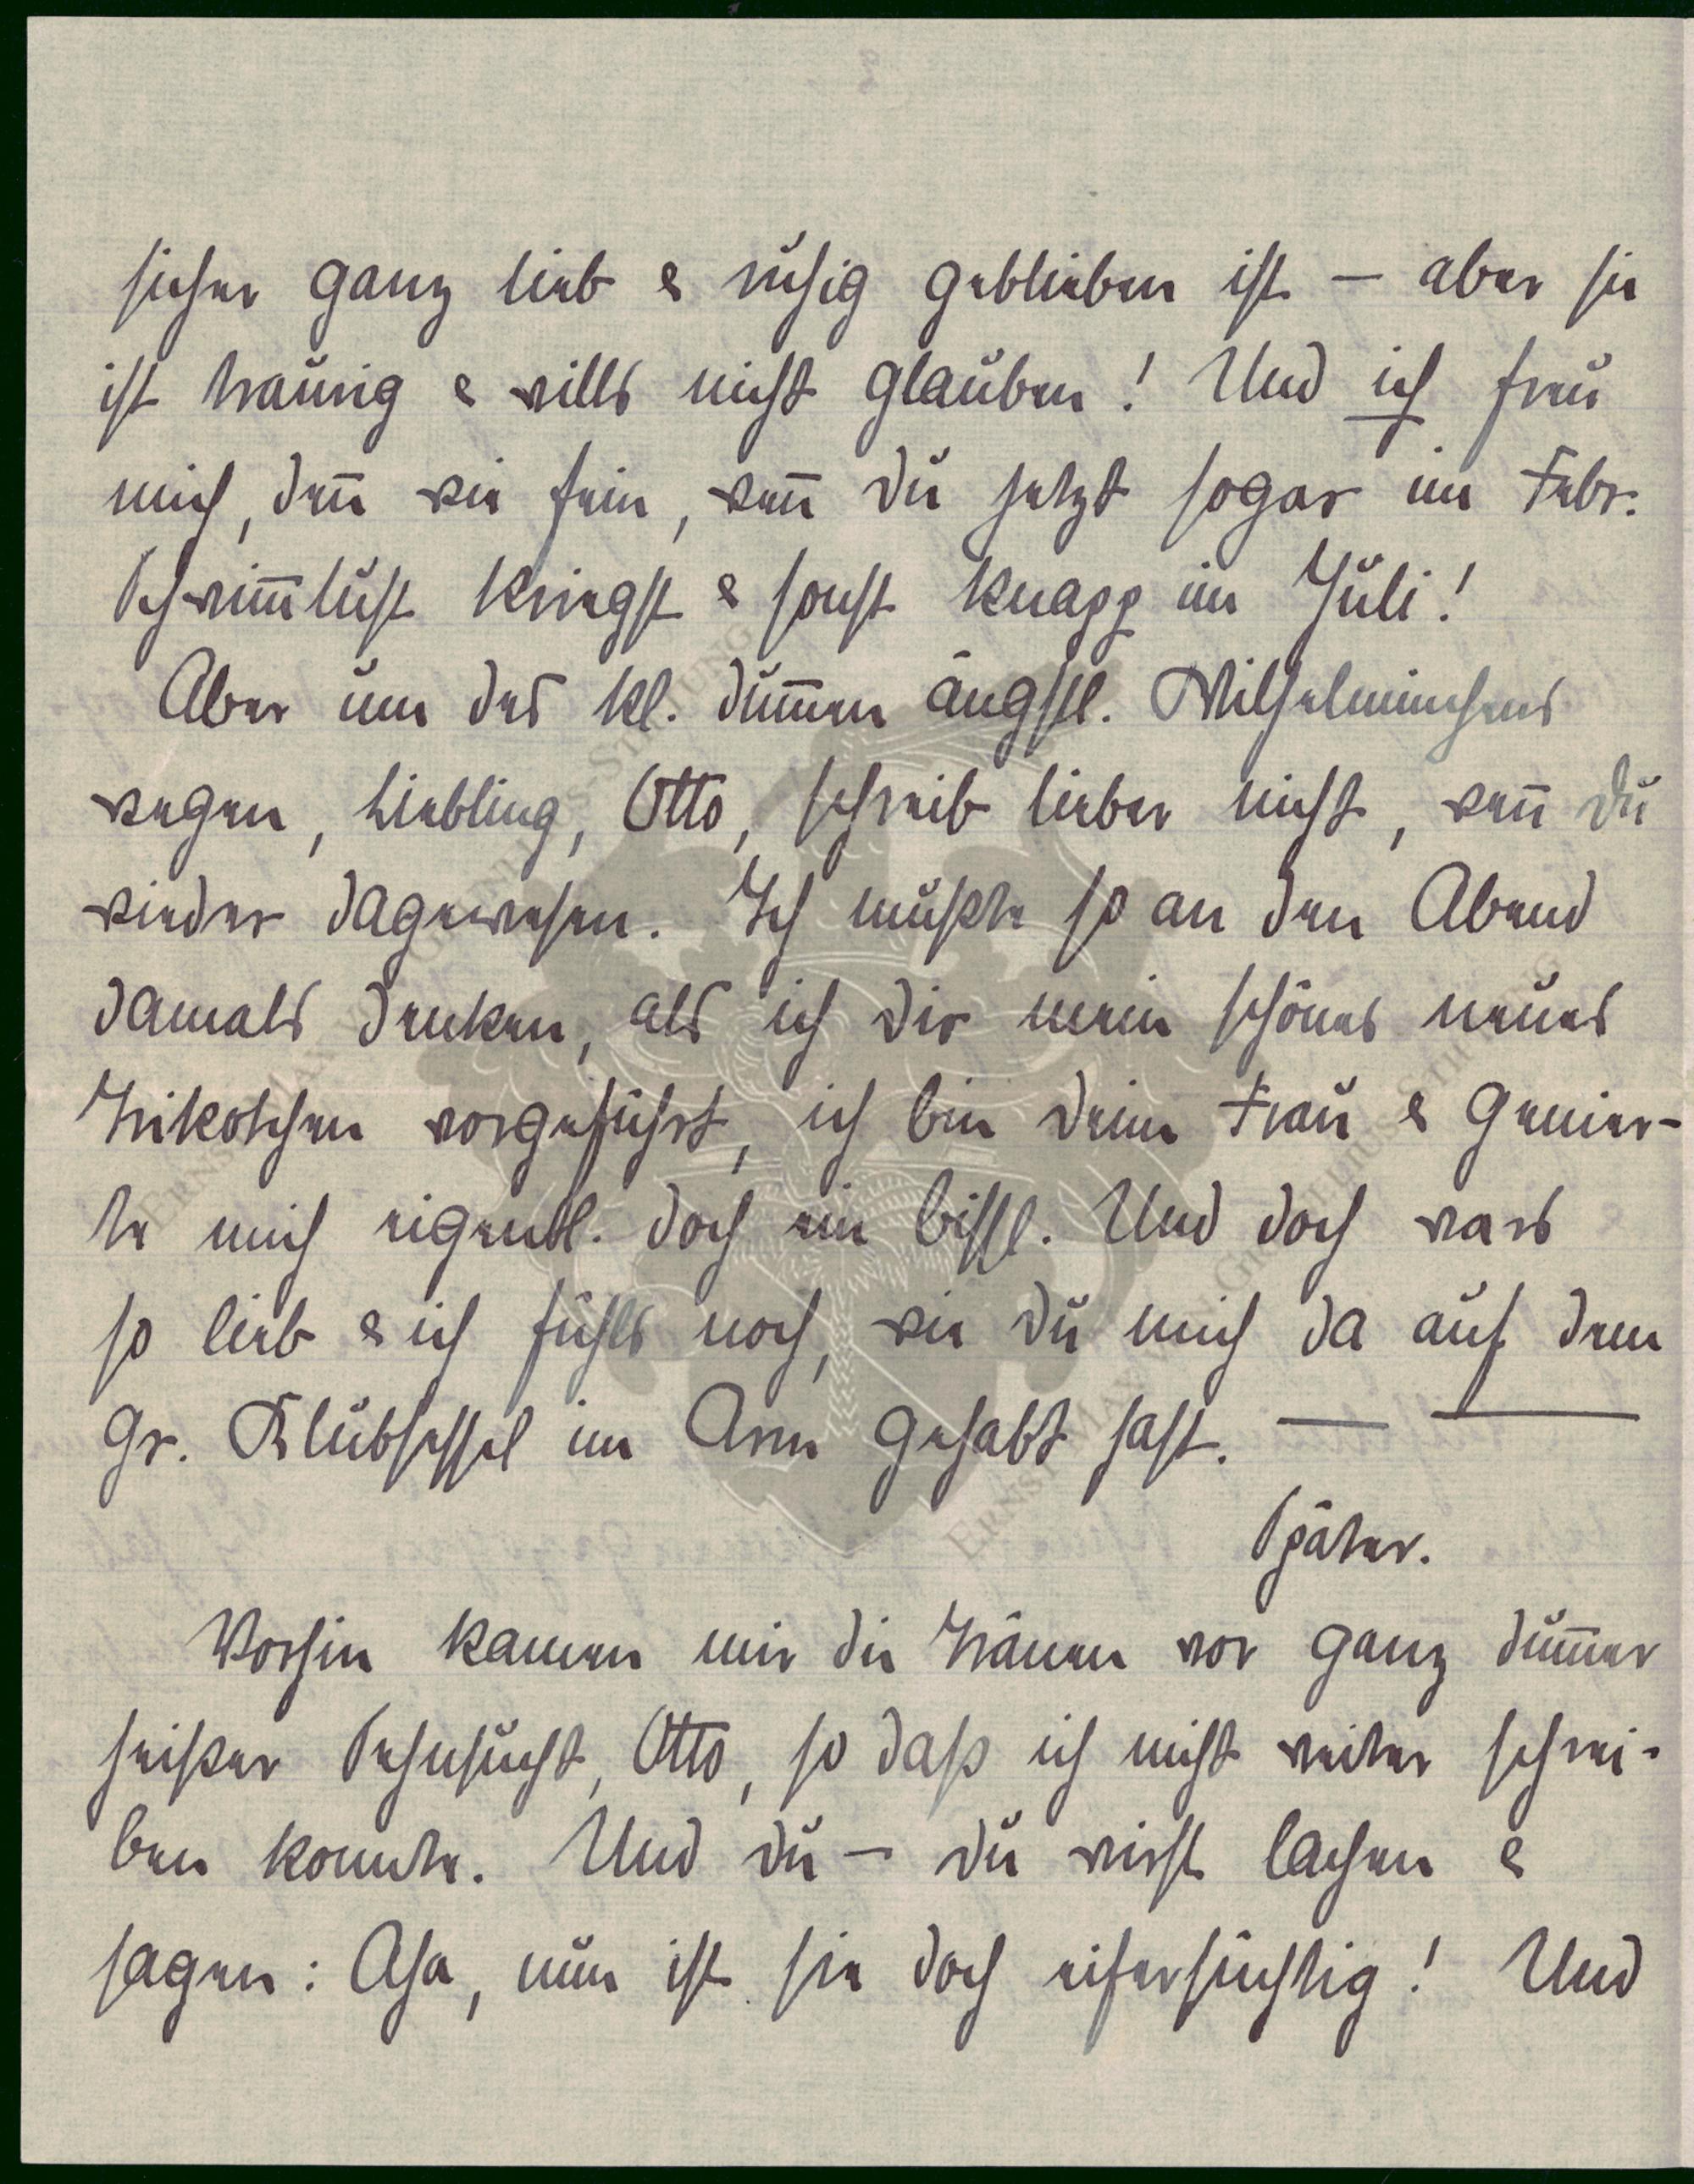 sicher ganz lieb & ruhig geblieben ist – aber sie
ist traurig & wills nicht glauben! Und ich freu
mich, deñ wie fein, weñ Du jetzt sogar im Febr.
Schwim̄lust kriegst & sonst knapp im Juli!
Aber um des kl. dum̄en ängstl. Wilhelminchens
wegen, Liebling, Otto, schreib lieber nicht, weñ Du
wieder dagewesen. Ich mußte so an den Abend
damals denken, als ich Dir mein schönes neues
Trikotchen vorgeführt, ich bin Deine Frau & genier-
te mich eigentl. doch ein bissl. Und doch wars
so lieb & ich fühls noch, wie Du mich da auf dem
gr. Klubsessel im Arm gehabt hast. — —
Später.
Vorhin kamen mir die Tränen vor ganz dum̄er
heißer Sehnsucht, Otto, so daß ich nicht weiter schrei-
ben konnte. Und Du – Du wirst lachen &
sagen: Aha, nun ist sie doch eifersüchtig! Und